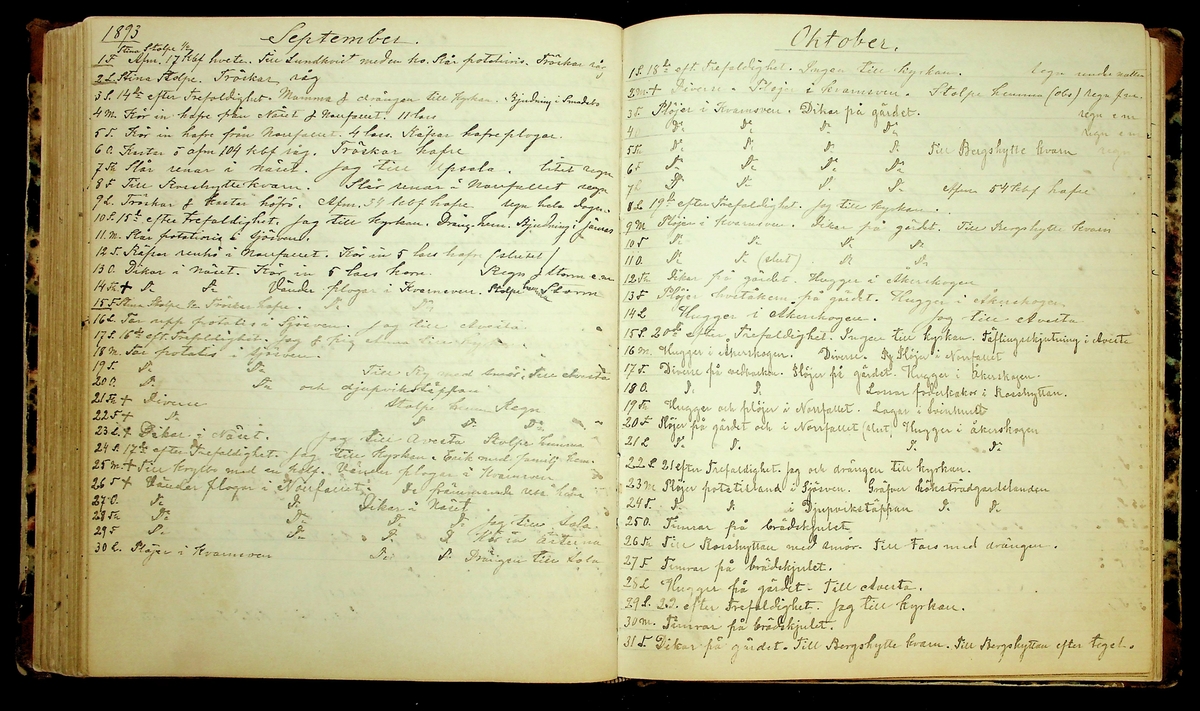 1893
September.
Stina Stolpe ½
1 F Afm. 17 kbf hvete. Till Lundkvist med en ko. Slår potatisris. Tröskar råg
2 L Stina Stolpe. Tröskar råg
3 S. 14de efter Trefaldighet. Mamma & drängen till kyrkan. Bjudning i Smedsbo
4 M. Kör in hafre från Näset & Norrfallet. 11 lass
5 T. Kör in hafre från Norrfallet. 4 lass. Räfsar hafreplogar.
6 O. Kastar & afm 104 kbf råg. Tröskar hafre
7 Th Slår renar i näset. Jag till Upsala. litet regn
8 F. Till Rosshytte kvarn. Slår renar i Norrfallet regn
9 L. Tröskar & kastar höfrö. Afm. 34 kbf hafre. regn hela dagen
10 S. 15de efter Trefaldighet. Jag till kyrkan. Dräng hem. Bjudning i
11 M. Slår potatisris i Sjösven.
12 T. Räfsar renhö i Norrfallet. Kör in 5 lass hafre (slutet)
13 O. Dikar i Näset. Kör in 5 lass korn. Regn & Storm e.m
14 Th + Do Do Vänder plogar i Kvarnsven. Stolpe hemma Storm
15 F Stina Stolpe ½ Tröskar hafre. Do Do
16 L. Tar upp potatis i Sjösven. Jag till Avesta
17 S. 16de eft. Trefaldighet. Jag &
18 M. Tar potatis i Sjösven.
19 T. Do Do Till Ky med smör, Till Avesta
20 O. Do Do och djupvikstäppan
21 Th + Diverse Stolpe hemma Regn
22 F + Do Do Do
23 L + Dikar i Näset. Jag till Avesta Stolpe hemma
24 S. 17de efter Trefaldighet. Jag till Kyrkan. Erik med familj hem.
25 M. + Till Krylbo med en kalf. Vänder plogar i Kvarnsven
26 T + Vänder plogar i Norrfallet. De främmande resa hem
27 O. Do Do Dikar i Näset
28 Th Do Do Do Do Jag till Sala.
29 F Do Do Do Do Kör in Ärterna
30 L. Plöjer i Kvarnsven Do Do Drängen till Sala
Oktober.
1 S. 18de eft. Trefaldighet. Ingen till kyrkan. regn rende natten
2 M. + Diverse. Plöjer i Kvarnsven. Stolpe hemma (obs) regn f.m.
3 T. Plöjer i Kvarnsven. Dikar på gärdet. regn e m
4 O Do Do Do Do regn e m
5 Th Do Do Do Do Till Bergshytte kvarn regn
6 F Do Do Do Do
7 L Do Do Do Do Afmer 54 kbf hafre
8 S. 19de efter Trefaldighet. Jag till Kyrkan.
9 M Plöjer i Kvarnsven. Dikar på gärdet. Till Bergshytte kvarn
10 T Do Do Do Do
11 O. Do Do (slut) Do Do
12 Th Dikar på gärdet. Hugger i Åkerskogen
13 F Plöjer hveteåkern på gärdet. Hugger i Åkerskogen
14 L Hugger i Åkerskogen. Jag till Avesta
15 S. 20de efter Trefaldighet. Ingen till kyrkan. Täflingsskjutning i Avesta
16 M. Hugger i Åkerskogen. Diverse. Plöjer i Norrfallet
17 T. Diverse på vedbacken. Plöjer på gärdet. Hugger i Åkerskogen.
18 O. Do Do Lånar foderkakor i Rosshyttan.
19 Th Hugger och plöjer i Norrfallet. Lagar i svinhuset
20 F Plöjer på gärdet och i Norrfallet (slut, Hugger i åkerskogen
21 L Do Do Do Do
22 S. 21 efter Trefaldighet. Jag och drängen till kyrkan.
23 M Plöjer potatisland i Sjösven. Gräfver köksträdgårdslanden
24 T. Do Do i Djupvikstäppan Do Do
25 O. Timrar på brädskjulet
26 Th Till Rosshyttan med smör. Till Fors med drängen.
27 F Timrar på brädskjulet.
28 L Hugger på gärdet. Till Avesta.
29 S. 22. efter Trefaldighet. Jag till kyrkan.
30 M. Timrar på brädskjulet.
31 T. Dikar på gärdet. Till Bergshytte kvarn. Till Bergshyttan efter tegel.